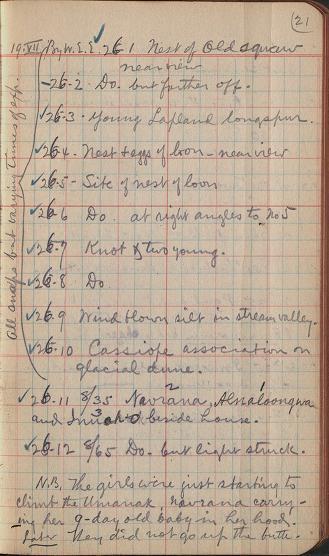 21
19.VII By W.E.E. 26-1 Nest of Old squaw
near view
-26-2 Do. but farther off.
26-3 - Young Lapland longspur.
26-4 - Nest & eggs of loon - near view
26-5 - Site of nest of loon
26-6 Do. at right angles to No 5
26-7 Knot & two young.
26-8 Do
26-9 Wind blown silt in stream valley.
26-10 Cassiope association on
glacial dune.
All snaps but varying times of exp.
26-11 8/35 Navrana, 2 Alnaloongwa 1
and 3 beside house.
26-12 8/65 Do. but light struck.
N.B. The girls were just starting to
climb the Umanak, Navrana carry-
ing her 9-day old baby in her hood.
Later They did not go up the butte.